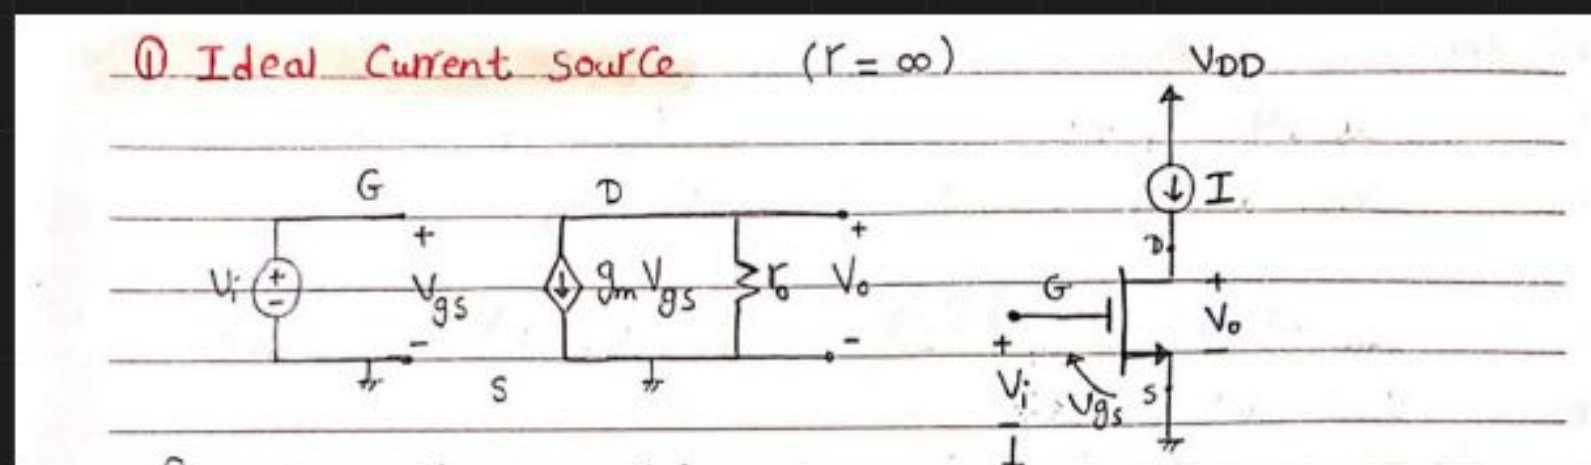 ① Ideal Current source (r = ∞)
VDD
I
G
D
D
+
Vi
+
-
Vgs
gm Vgs
ro
+
Vo
-
-
S
G
+
Vo
-
+
Vi
-
Vgs
S